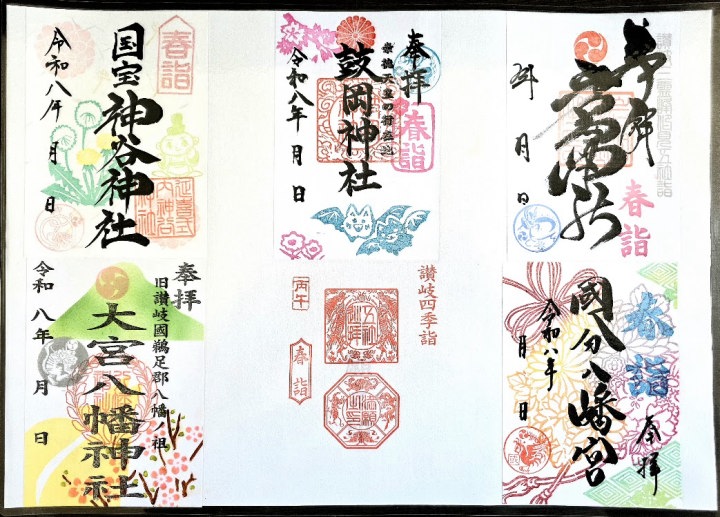 春詣
国宝 神谷神社
令和八年 月 日
延喜式
内神谷
神社
奉拝
崇徳天皇の御在所
鼓岡神社
春詣
令和八年 月 日
奉拝
春詣
年 月 日
奉拝
旧讃岐國鵜足郡八幡ノ祖
大宮八幡神社
令和八年 月 日
讃岐四季詣
丙午
春詣
春詣
奉拝
國分八幡宮
令和八年 月 日